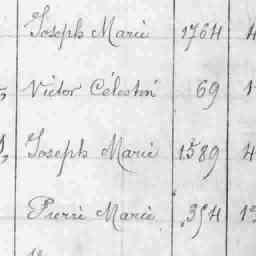 Joseph Marie 1764 4
Victor Célestin 69 1
Joseph Marie 1589 4
Pierre Marie 354